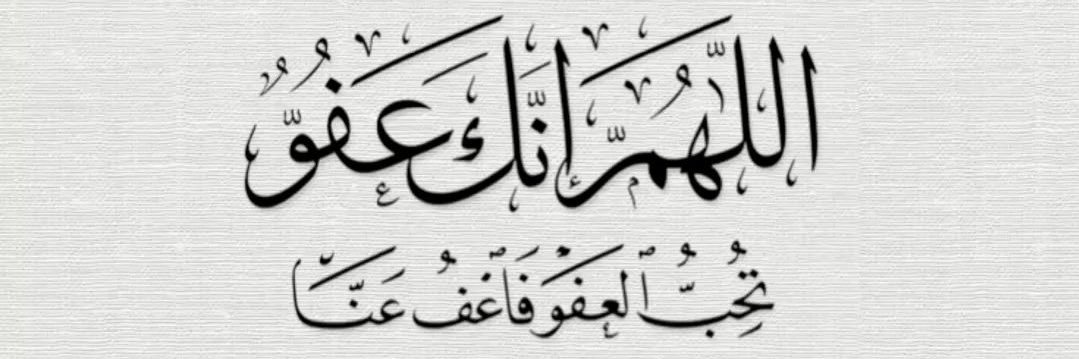 اللّٰهُمَّ إِنَّكَ عَفُوٌّ
تُحِبُّ ٱلْعَفْوَ فَٱعْفُ عَنَّا